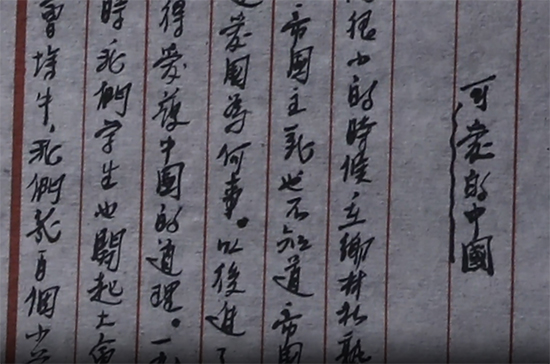 可愛的中國
很小的時候在鄉村私塾
帝國主義也不知道帝國
愛國為何事。以後進
得愛護中國的道理。一
時,我們學生也開起大會
會場中,我們幾百個小